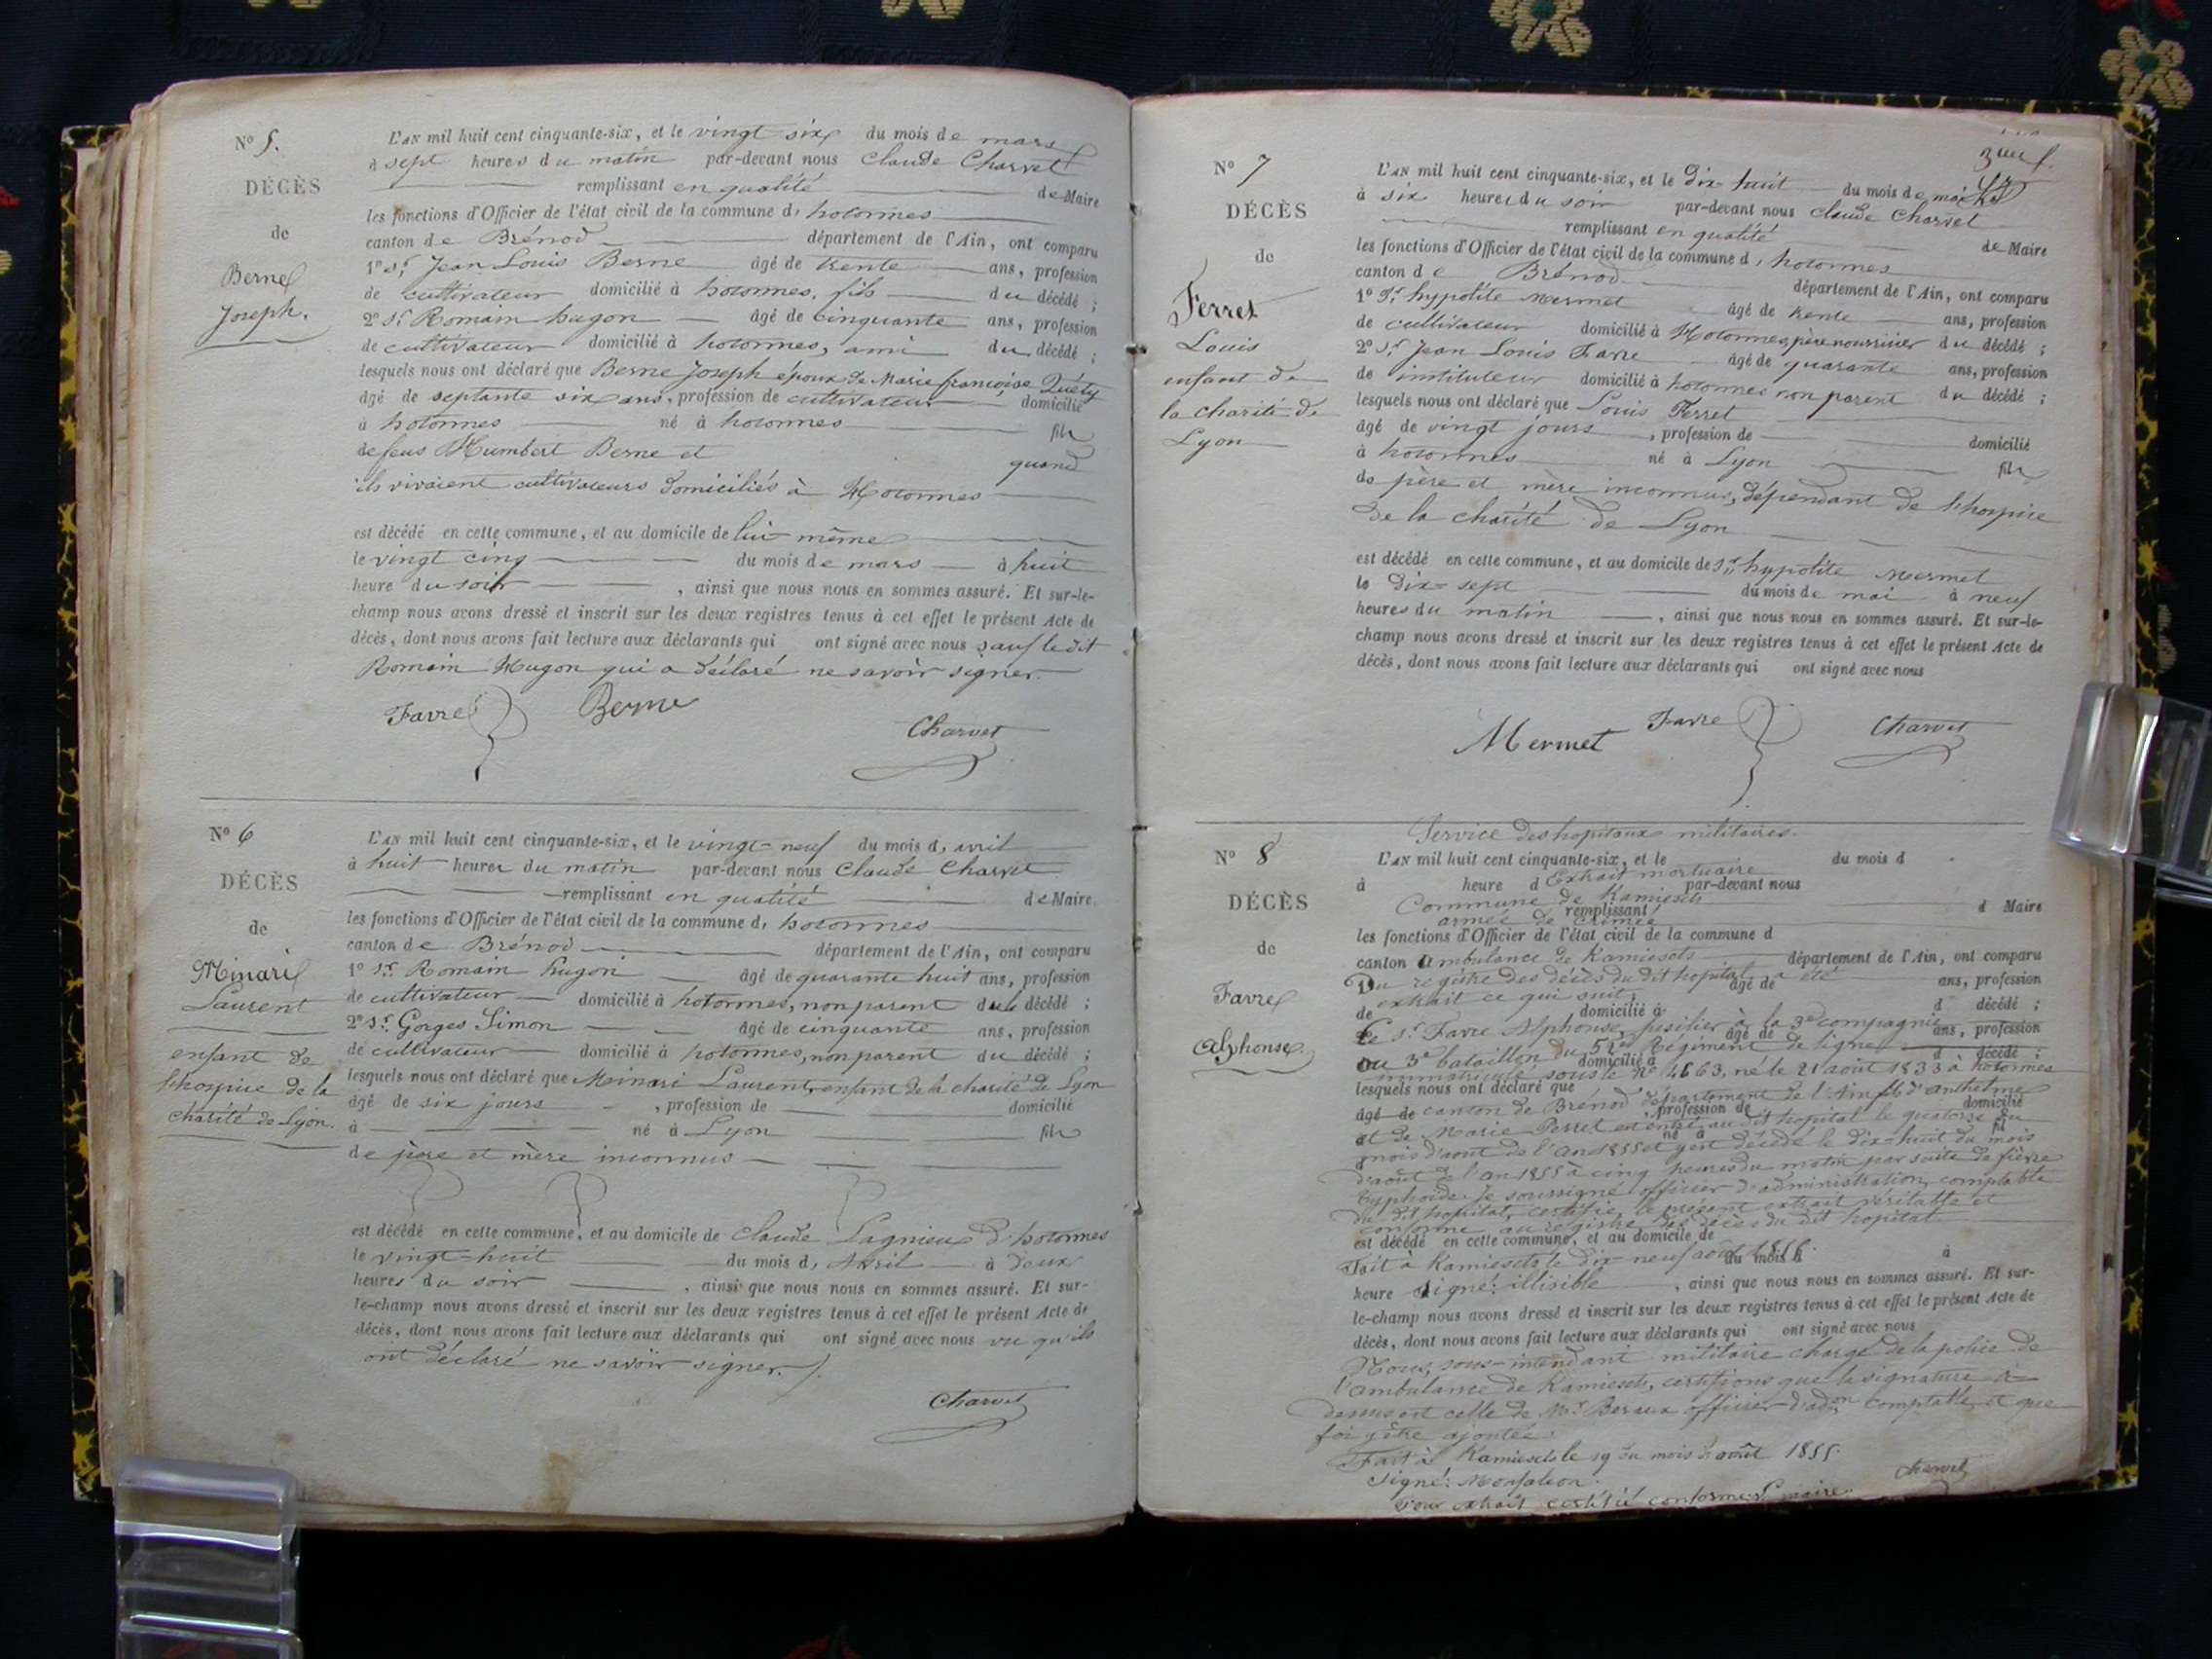 N° 5.
DÉCÈS
de
Berne
Joseph.
L'AN mil huit cent cinquante-six, et le vingt six du mois de mars
à sept heures du matin par-devant nous Claude Charvet
remplissant en qualité de Maire
les fonctions d'Officier de l'état civil de la commune d, hotonnes
canton de Brénod département de l'Ain, ont comparu
1° Sr Jean Louis Berne âgé de trente ans, profession
de cultivateur domicilié à hotonnes, fils du décédé ;
2° Sr Romain hugon âgé de cinquante ans, profession
de cultivateur domicilié à hotonnes, ami du décédé ;
lesquels nous ont déclaré que Berne Joseph époux de Marie françoise
âgé de septante six ans, profession de cultivateur domicilié
à hotonnes né à hotonnes fils
de feus Humbert Berne et quand
ils vivaient cultivateurs domiciliés à Hotonnes
est décédé en cette commune, et au domicile de lui même
le vingt cinq du mois de mars à huit
heure du soir , ainsi que nous nous en sommes assuré. Et sur-le-
champ nous avons dressé et inscrit sur les deux registres tenus à cet effet le présent Acte de
décès, dont nous avons fait lecture aux déclarants qui ont signé avec nous sauf le dit
Romain Hugon qui a déclaré ne savoir signer.
Favre Berne Charvet
N° 6
DÉCÈS
de
Minari
Laurent
enfant de
l'hospice de la
charité de Lyon.
L'AN mil huit cent cinquante-six, et le vingt-neuf du mois d, avril
à huit heures du matin par-devant nous Claude Charvet
remplissant en qualité de Maire
les fonctions d'Officier de l'état civil de la commune d, hotonnes
canton de Brénod département de l'Ain, ont comparu
1° Sr Romain hugon âgé de quarante huit ans, profession
de cultivateur domicilié à hotonnes, non parent du décédé ;
2° Sr Gorges Simon âgé de cinquante ans, profession
de cultivateur domicilié à hotonnes, non parent du décédé ;
lesquels nous ont déclaré que Meinari Laurent, enfant de la charité de Lyon
âgé de six jours , profession de domicilié
à né à Lyon fils
de père et mère inconnus
est décédé en cette commune, et au domicile de Claude Lagnieu d'hotonnes
le vingt-huit du mois d, Avril à deux
heures du soir , ainsi que nous nous en sommes assuré. Et sur-
le-champ nous avons dressé et inscrit sur les deux registres tenus à cet effet le présent Acte de
décès, dont nous avons fait lecture aux déclarants qui ont signé avec nous vu qu'ils
ont déclaré ne savoir signer.
Charvet
N° 7
DÉCÈS
de
Ferret
Louis
enfant de
la charité de
Lyon
L'AN mil huit cent cinquante-six, et le Dix-huit du mois de mai
à six heures du soir par-devant nous Claude Charvet
remplissant en qualité de Maire
les fonctions d'Officier de l'état civil de la commune d, hotonnes
canton de Brénod département de l'Ain, ont comparu
1° Sr hypolite Mermet âgé de trente ans, profession
de cultivateur domicilié à Hotonnes, père nourricier du décédé ;
2° Sr Jean Louis Favre âgé de quarante ans, profession
de instituteur domicilié à hotonnes non parent du décédé ;
lesquels nous ont déclaré que Louis Ferret
âgé de vingt jours , profession de domicilié
à hotonnes né à Lyon fils
de père et mère inconnus, dépendant de l'hospice
de la charité de Lyon
est décédé en cette commune, et au domicile de Sr hypolite Mermet
le Dix-sept du mois de mai à neuf
heures du matin , ainsi que nous nous en sommes assuré. Et sur-le-
champ nous avons dressé et inscrit sur les deux registres tenus à cet effet le présent Acte de
décès, dont nous avons fait lecture aux déclarants qui ont signé avec nous
Mermet Favre Charvet
N° 8
DÉCÈS
de
Favre
Alphonse.
Service des hopitaux militaires.
L'AN mil huit cent cinquante-six, et le du mois d
Extrait mortuaire
à heure d par-devant nous
Commune de Kamiesch
remplissant d Maire
armée de Crimée
les fonctions d'Officier de l'état civil de la commune d
canton ambulance de Kamiesch département de l'Ain, ont comparu
Du registre des décès du dit hopital a été
âgé de ans, profession
extrait ce qui suit :
de domicilié à d décédé ;
Le Sr Favre Alphonse, fusilier à la 3e compagnie
âgé de ans, profession
du 3e bataillon du 52e Régiment de ligne
domicilié à d décédé ;
immatriculé sous le n° 4663, né le 21 août 1833 à hotonnes
lesquels nous ont déclaré que
canton de Brénod département de l'Ain fils d'anthelme
âgé de , profession de domicilié
et de Marie Perret est entré au dit hopital le quatorze du
à né à fil
mois d'aout de l'an 1855 et y est décédé le dix-huit du mois
d'août de l'an 1855 à cinq heures du matin par suite de fièvre
typhoïde. Je soussigné officier d'administration, comptable
du dit hopital, certifie le présent extrait véritable et
conforme au registre des décès du dit hopital
est décédé en cette commune, et au domicile de
Fait à Kamiesch le dix-neuf août 1855.
du mois d à
heure Signé : illisible , ainsi que nous nous en sommes assuré. Et sur-
le-champ nous avons dressé et inscrit sur les deux registres tenus à cet effet le présent Acte de
décès, dont nous avons fait lecture aux déclarants qui ont signé avec nous
Nous, sous-intendant militaire chargé de la police de
l'ambulance de Kamiesch, certifions que la signature ci-
dessus est celle de Mr officier d'adon comptable et que
foi y être ajoutée.
Fait à Kamiesch le 19 du mois d'août 1855.
Signé :
Pour extrait certifié conforme. Le maire. Charvet